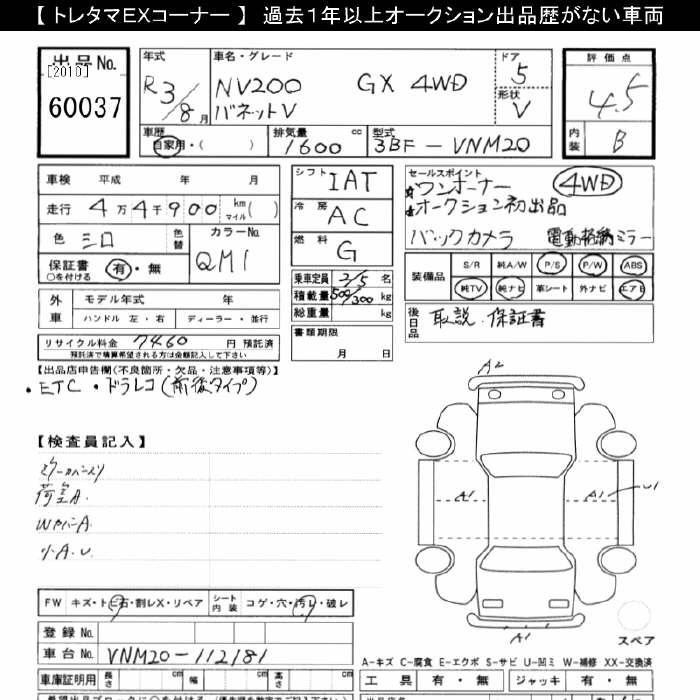 【 トレタマEXコーナー 】 過去1年以上オークション出品歴がない車両
出品 No. [2010] 60037
年式 R3/8月
車名・グレード NV200 バネットV GX 4WD
ドア 5
形状 V
評価点 4.5
内装 B
車歴 自家用・( )
排気量 1600 cc
型式 3BF-VNM20
車検 平成 年 月
走行 4万4千900 km マイル( )
色 シロ 色替
カラーNo. QM1
保証書 ○を付ける 有・無
外車 モデル年式 年
ハンドル 左・右 ディーラー・並行
リサイクル料金 7460 円 預託済
預託済で精算希望される方は金額記入して下さい
シフト IAT
冷房 AC
燃料 G
乗車定員 2/5 名
積載量 500/300 kg
総重量 kg
書類期限
月 日
セールスポイント
ワンオーナー 4WD
オークション初出品
バックカメラ 電動格納ミラー
装備品 S/R 純A/W P/S P/W ABS
純TV 純ナビ 革シート 外ナビ エアB
後日品 取説・保証書
【出品店申告欄(不良箇所・欠品・注意事項等)】
・ETC ・ドラレコ(前後タイプ)
【検査員記入】
荷室A.
小A.U.
A2
A1
A1
U1
A1
スペア
FW キズ・トビ石・割レX・リペア シート内装 コゲ・穴・汚レ・破レ
登録 No.
車台 No. VNM20-112181
A-キズ C-腐食 E-エクボ S-サビ U-凹ミ W-補修 XX-交換済
車庫証明用 長さ cm 幅 cm 高さ cm
工具 有・無 ジャッキ 有・無